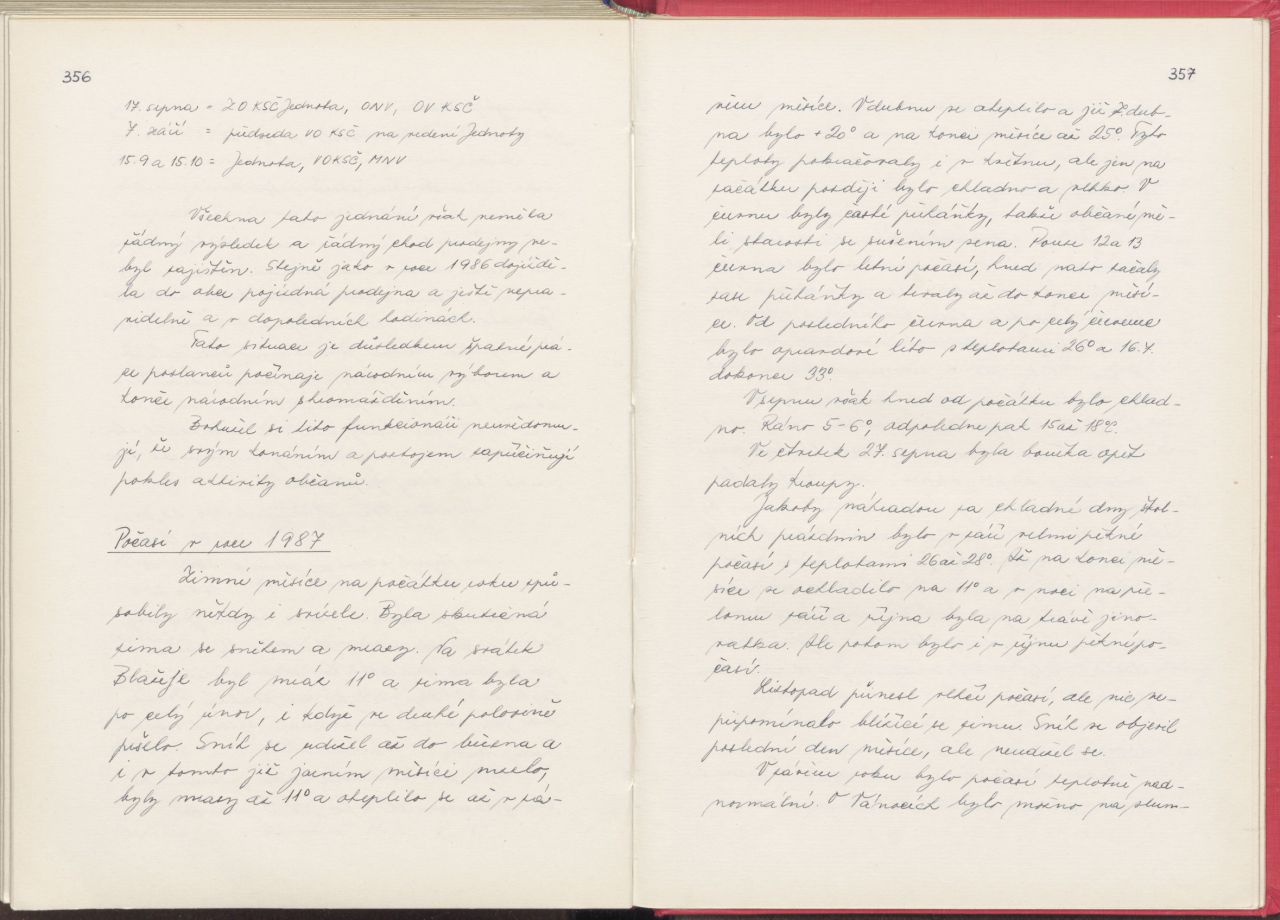 356
17. srpna = ZO KSČ Jednota, ONV, OV KSČ
7. září = předseda VO KSČ na vedení Jednoty
15.9 a 15.10 = Jednota, VOKSČ, MNV
Všechna tato jednání však neměla
žádný výsledek a řádný chod prodejny ne-
byl zajištěn. Stejně jako v roce 1986 dojíždě-
la do obce pojízdná prodejna a ještě nepra-
videlně a v dopoledních hodinách.
Tato situace je důsledkem špatné prá-
ce poslanců počínaje národním výborem a
konče národním shromážděním.
Bohužel si tito funkcionáři neuvědomu-
jí, že svým konáním a postojem zapříčiňují
pokles aktivity občanů.
Počasí v roce 1987
Zimní měsíce na počátku roku způ-
sobily někdy i svízele. Byla skutečná
zima se sněhem a mrazy. Na svátek
Blažeje byl mráz 11° a zima byla
po celý únor, i když ve druhé polovině
pršelo. Sníh se udržel až do března a
i v tomto již jarním měsíci mrzlo,
byly mrazy až 11° a oteplilo se až v zá-
357
věru měsíce. V dubnu se oteplilo a již 7. dub-
na bylo +20° a na konci měsíce až 25°. Tyto
teploty pokračovaly i v květnu, ale jen na
začátku později bylo chladno a vlhko. V
červnu byly časté přeháňky, takže občané mě-
li starosti se sušením sena. Pouze 12 a 13
června bylo letní počasí, hned nato začaly
zase přeháňky a trvaly až do konce měsí-
ce. Od posledního června a po celý červenec
bylo opravdové léto s teplotami 26° a 16.7.
dokonce 33°.
V srpnu však hned od počátku bylo chlad-
no. Ráno 5-6°, odpoledne pak 15 až 18°C.
Ve čtvrtek 27. srpna byla bouřka opět
padaly kroupy.
Jakoby náhradou za chladné dny škol-
ních prázdnin bylo v září velmi pěkné
počasí s teplotami 26 až 28°. Až na konci mě-
síce se ochladilo na 11° a v noci na pře-
lomu září a října byla na trávě jino-
vatka. Ale potom bylo i v říjnu pěkné po-
časí.
Listopad přinesl vlhčí počasí, ale nic ne-
připomínalo blížící se zimu. Sníh se objevil
poslední den měsíce, ale neudržel se.
V závěru roku bylo počasí teplotně nad-
normální. O Vánocích bylo možno na slum-